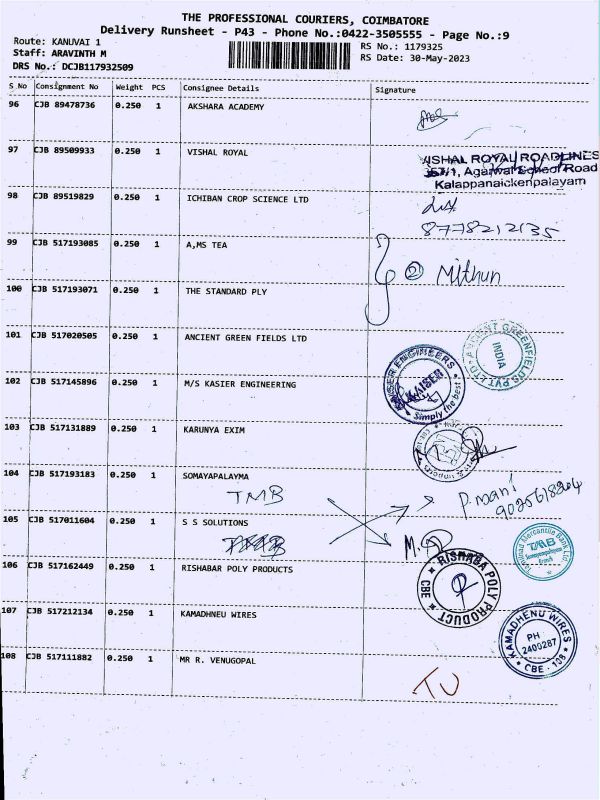 THE PROFESSIONAL COURIERS, COIMBATORE
Delivery Runsheet - P43 - Phone No.:0422-3505555 - Page No.:9
Route: KANUVAI 1
Staff: ARAVINTH M
DRS No.: DCJB117932509
RS No.: 1179325
RS Date: 30-May-2023
S No Consignment No Weight PCS Consignee Details Signature
96 CJB 89478736 0.250 1 AKSHARA ACADEMY
97 CJB 89509933 0.250 1 VISHAL ROYAL
VISHAL ROYAL ROADLINES
357/1, Agarwal School Road
Kalappanaickenpalayam
98 CJB 89519829 0.250 1 ICHIBAN CROP SCIENCE LTD
8778212135
99 CJB 517193085 0.250 1 A,MS TEA
② Mithun
100 CJB 517193071 0.250 1 THE STANDARD PLY
101 CJB 517020505 0.250 1 ANCIENT GREEN FIELDS LTD
ANCIENT GREENFIELDS PVT LTD
INDIA
102 CJB 517145896 0.250 1 M/S KASIER ENGINEERING
KAISER ENGINEERS
KAISER
Simply the best
103 CJB 517131889 0.250 1 KARUNYA EXIM
104 CJB 517193183 0.250 1 SOMAYAPALAYMA
TMB
P.mani
9025618204
105 CJB 517011604 0.250 1 S S SOLUTIONS
Tamilnad Mercantile Bank Ltd.
TMB
Branch
106 CJB 517162449 0.250 1 RISHABAR POLY PRODUCTS
RISHABA POLY PRODUCT
CBE
107 CJB 517212134 0.250 1 KAMADHNEU WIRES
KAMADHENU WIRES
PH
2400287
CBE - 108
108 CJB 517111882 0.250 1 MR R. VENUGOPAL
TU